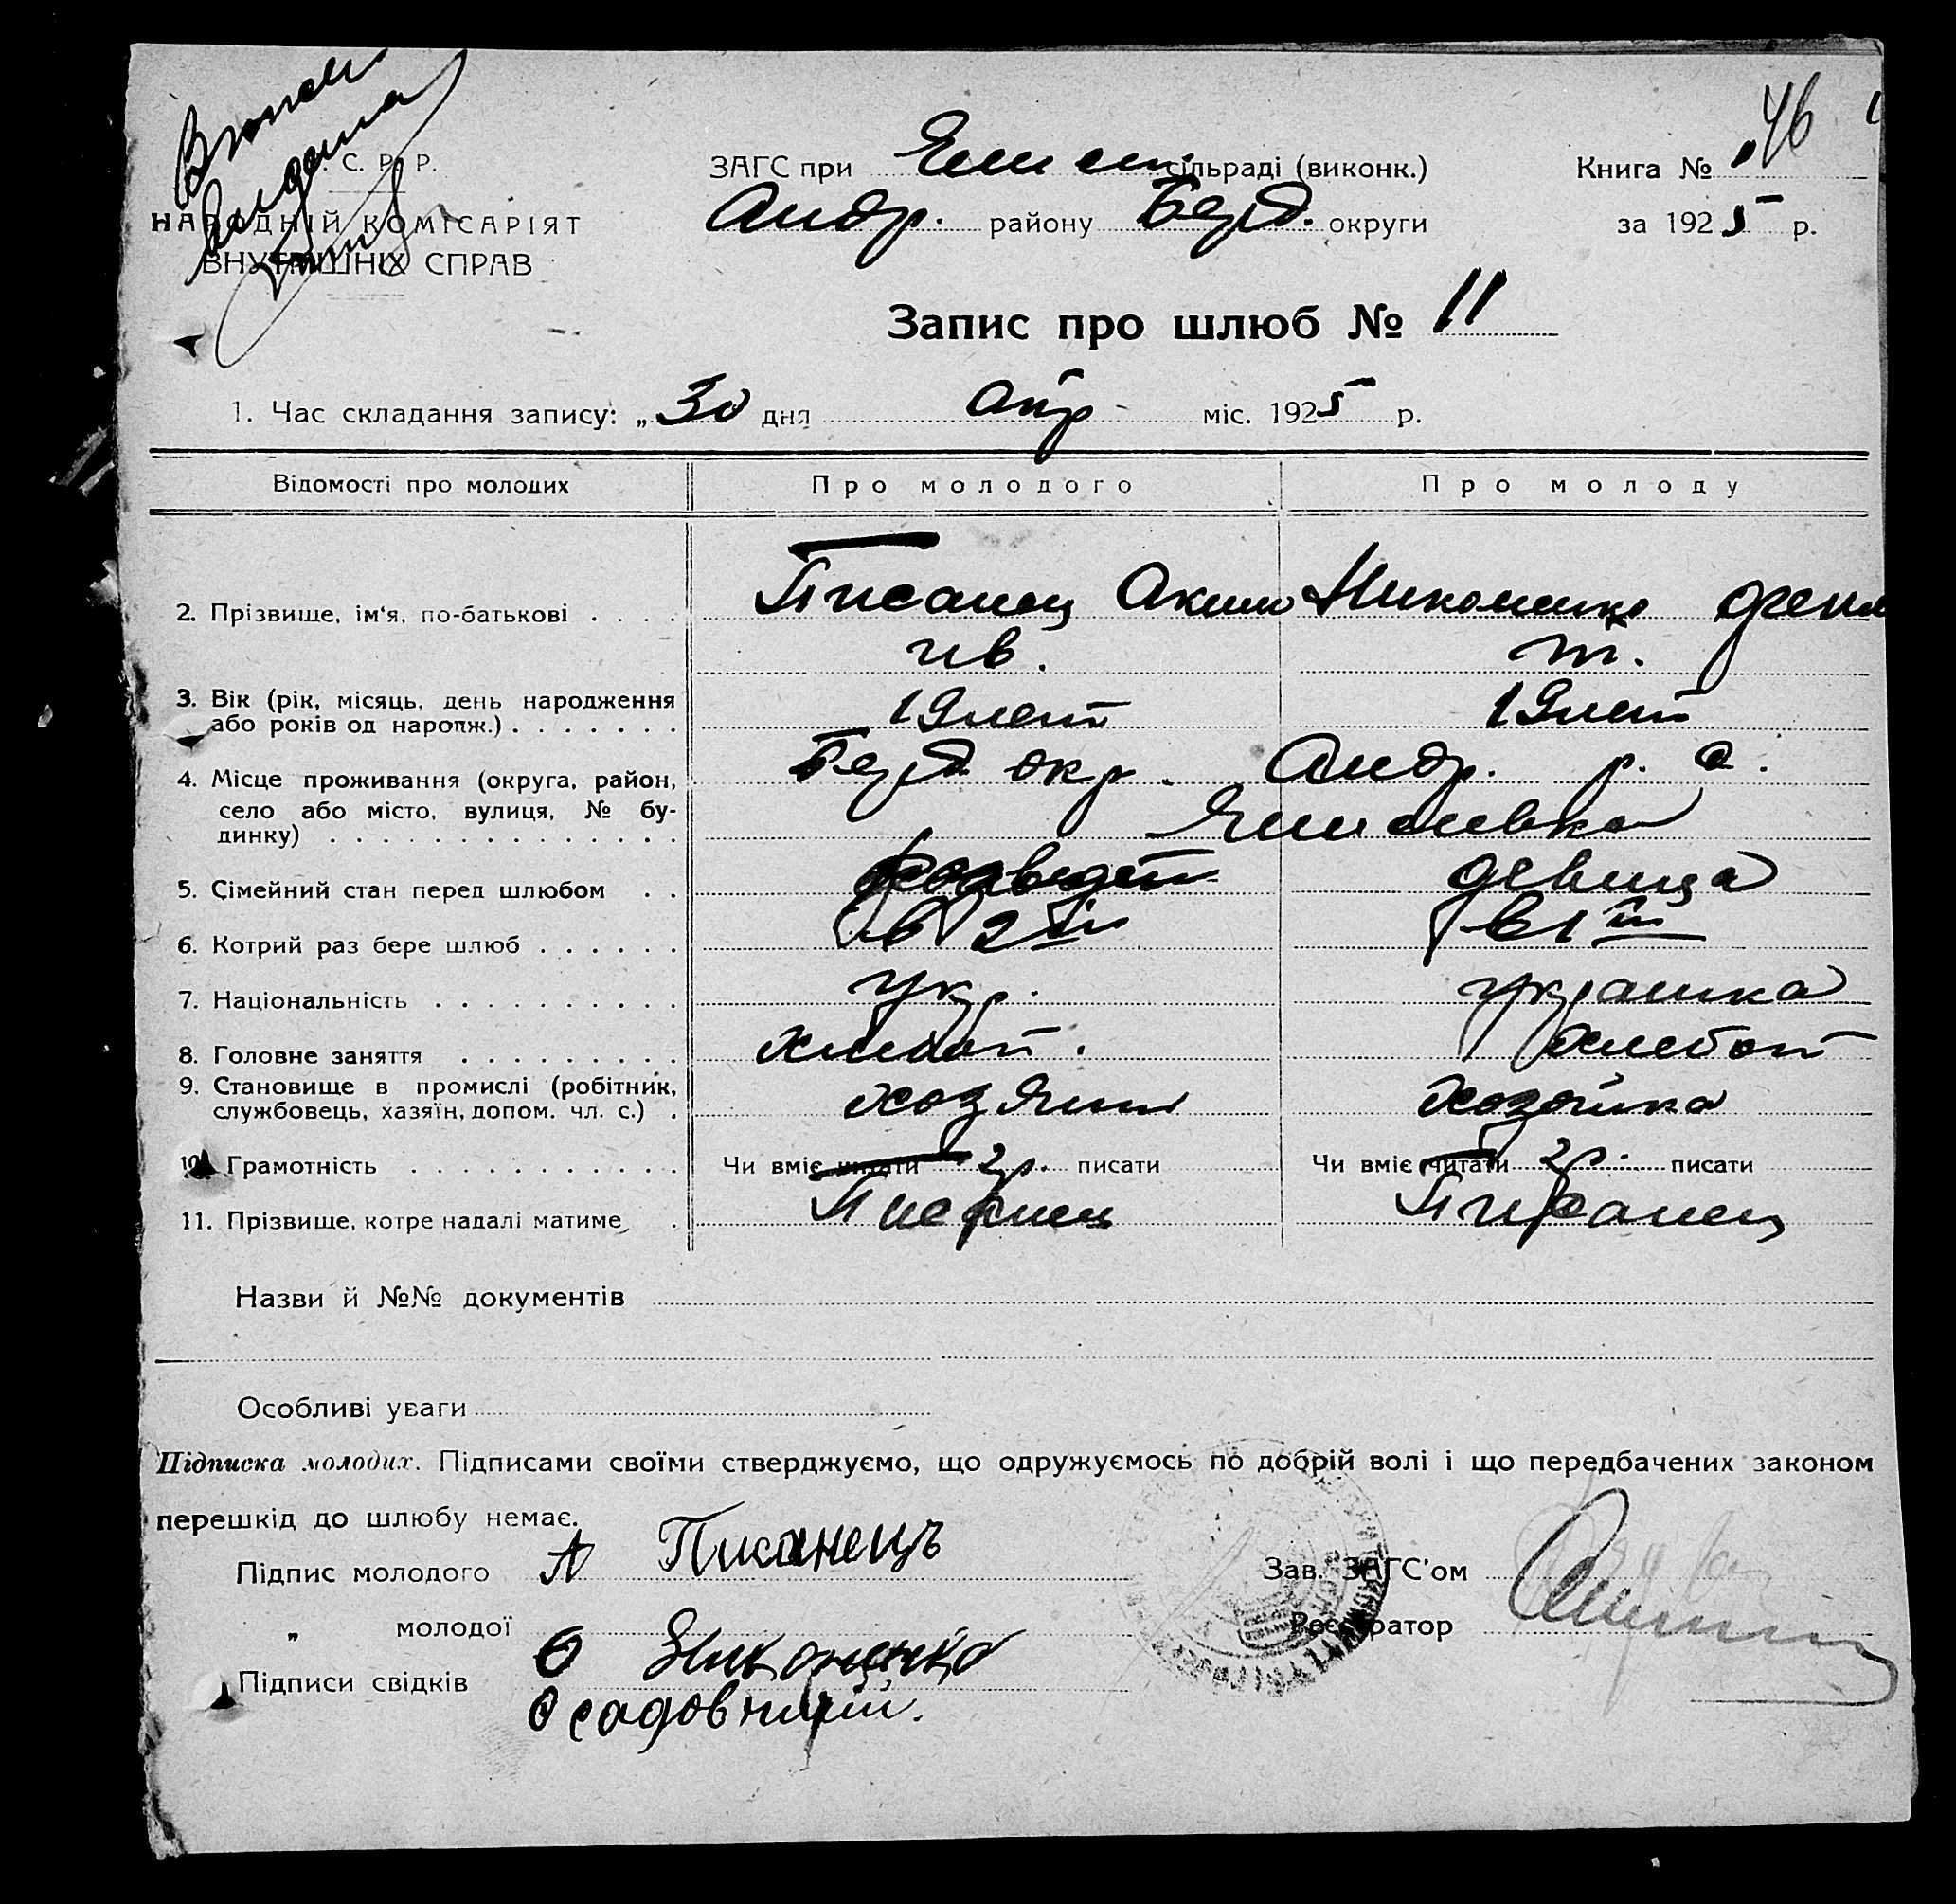 С. Р. Р.
НАРОДНІЙ КОМІСАРІЯТ
ВНУТРІШНІХ СПРАВ
ЗАГС при сільраді (виконк.)
Андр. району Берд. округи
Книга № 46
за 1925 р.
Запис про шлюб № 11
1. Час складання запису: „ 30 дня апр міс. 1925 р.
Відомості про молодих Про молодого Про молоду
2. Прізвище, ім'я, по-батькові . . . . Писанец Аким
ив. т.
3. Вік (рік, місяць, день народження
або років од народж.) . . . . . . . 19 лет 19 лет
4. Місце проживання (округа, район, Берд окр. Андр. р. с.
село або місто, вулиця, № бу-
динку) . . . . . . . . . . . . . .
5. Сімейний стан перед шлюбом . . разведен девица
6. Котрий раз бере шлюб . . . . . . в 2й в 1й
7. Національність . . . . . . . . . . укр. украинка
8. Головне заняття . . . . . . . . . хлебоп. хлебоп
9. Становище в промислі (робітник,
службовець, хазяїн, допом. чл. с.) . хозяин хозяйка
10. Грамотність . . . . . . . . . . . Чи вміє читати гр. писати Чи вміє читати гр. писати
11. Прізвище, котре надалі матиме . Писанец Писанец
Назви й №№ документів
Особливі уваги
Підписка молодих. Підписами своїми стверджуємо, що одружуємось по добрій волі і що передбачених законом
перешкід до шлюбу немає.
Підпис молодого А Писанецъ
„ молодої
Підписи свідків
Зав. ЗАГС'ом
Реєстратор